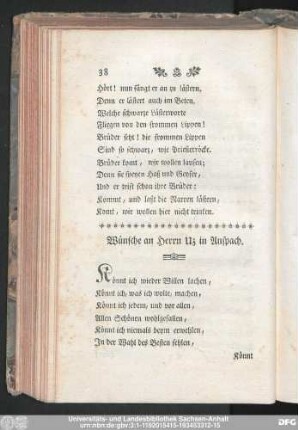 38
Hört! nun fängt er an zu lästern,
Denn er lästert auch im Beten.
Welche schwarze Lästerworte
Fliegen von den frommen Lippen!
Brüder seht! die frommen Lippen
Sind so schwarz, wie Priesterröcke.
Brüder komt, wir wollen laufen;
Denn sie speyen Haß und Geyfer,
Und er tritt schon ihre Brüder:
Kommt, und laßt die Narren lästern,
Komt, wir wollen hier nicht trinken.
Wünsche an Herrn Uz in Anspach.
Könnt ich wieder Willen lachen,
Könnt ich, was ich wolte, machen,
Könnt ich jedem, und vor allen,
Allen Schönen wohlgefallen,
Könnt ich niemals beym erwehlen,
In der Wahl des Besten fehlen,
Könnt
Universitäts- und Landesbibliothek Sachsen-Anhalt
urn:nbn:de:gbv:3:1-1192015415-183453312-15
DFG